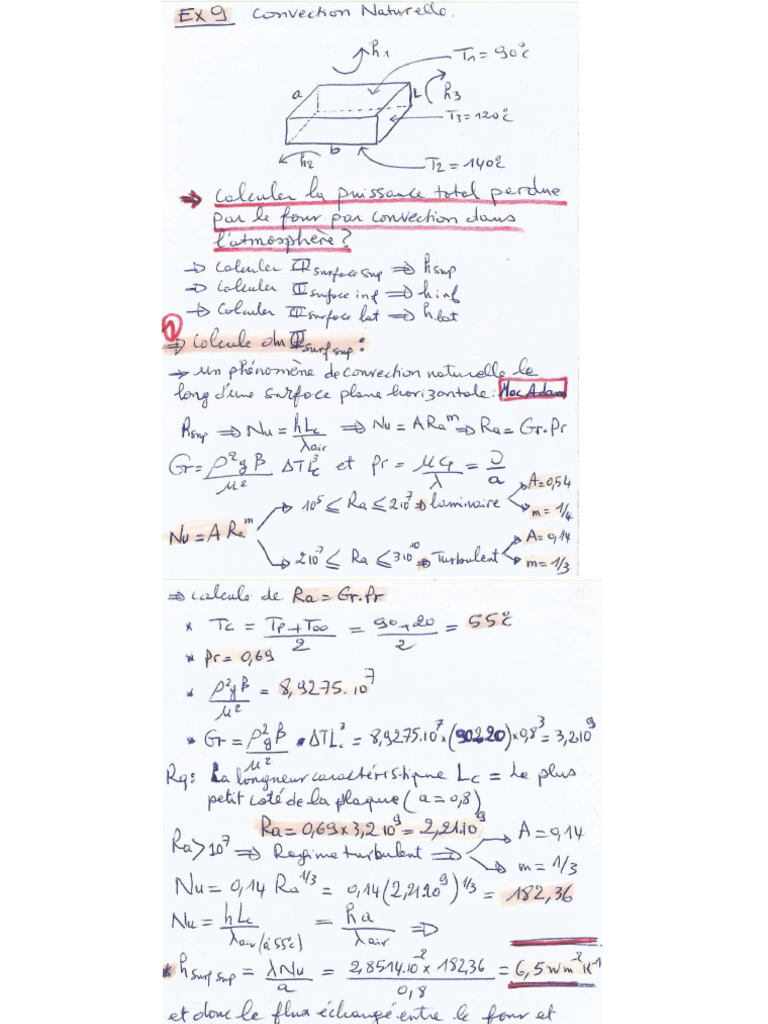 Ex 9 Convection Naturelle.
h1
T1 = 90°c
a
L
h3
T3 = 120°c
b
h2
T2 = 140°c
→ Calculer la puissance total perdue
par le four par convection dans
l'atmosphère ?
→ Calculer Φ surface sup ⇒ hsup
→ Calculer Φ surface inf ⇒ hinf
→ Calculer Φ surface lat ⇒ hlat
1
⇒ Calcule du Φ surf sup :
→ un phénomène de convection naturelle le
long d'une surface plane horizontale : Mac Adam
hsup ⇒ Nu = hLc/λair ⇒ Nu = A Ra^m ⇒ Ra = Gr.Pr
Gr = ρ²gβ/μ² ΔTLc³ et Pr = μCp/λ = ν/a
Nu = A Ra^m
10^5 ≤ Ra ≤ 2 10^7 ⇒ laminaire
A = 0,54
m = 1/4
2 10^7 ≤ Ra ≤ 3 10^10 ⇒ Turbulent
A = 0,14
m = 1/3
⇒ Calcule de Ra = Gr.Pr
* Tc = Tp + T∞/2 = 90 + 20/2 = 55°c
* Pr = 0,69
* ρ²gβ/μ² = 8,9275.10^7
* Gr = ρ²gβ/μ² • ΔTLc³ = 8,9275.10^7 × (90-20) × 0,8³ = 3,2 10^9
Rq : La longneur caractéristique Lc = Le plus
petit coté de la plaque (a = 0,8)
Ra = 0,69 × 3,2 10^9 = 2,21.10^9
Ra > 10^7 ⇒ Regime turbulent ⇒
A = 0,14
m = 1/3
Nu = 0,14 Ra^1/3 = 0,14 (2,21 10^9)^1/3 = 182,36
Nu = hLc/λair (à 55°c) = ha/λair ⇒
* hsurf sup = λNu/a = 2,8514.10^-2 × 182,36/0,8 = 6,5 w m^-2 K^-1
et donc le flux échangé entre le four et